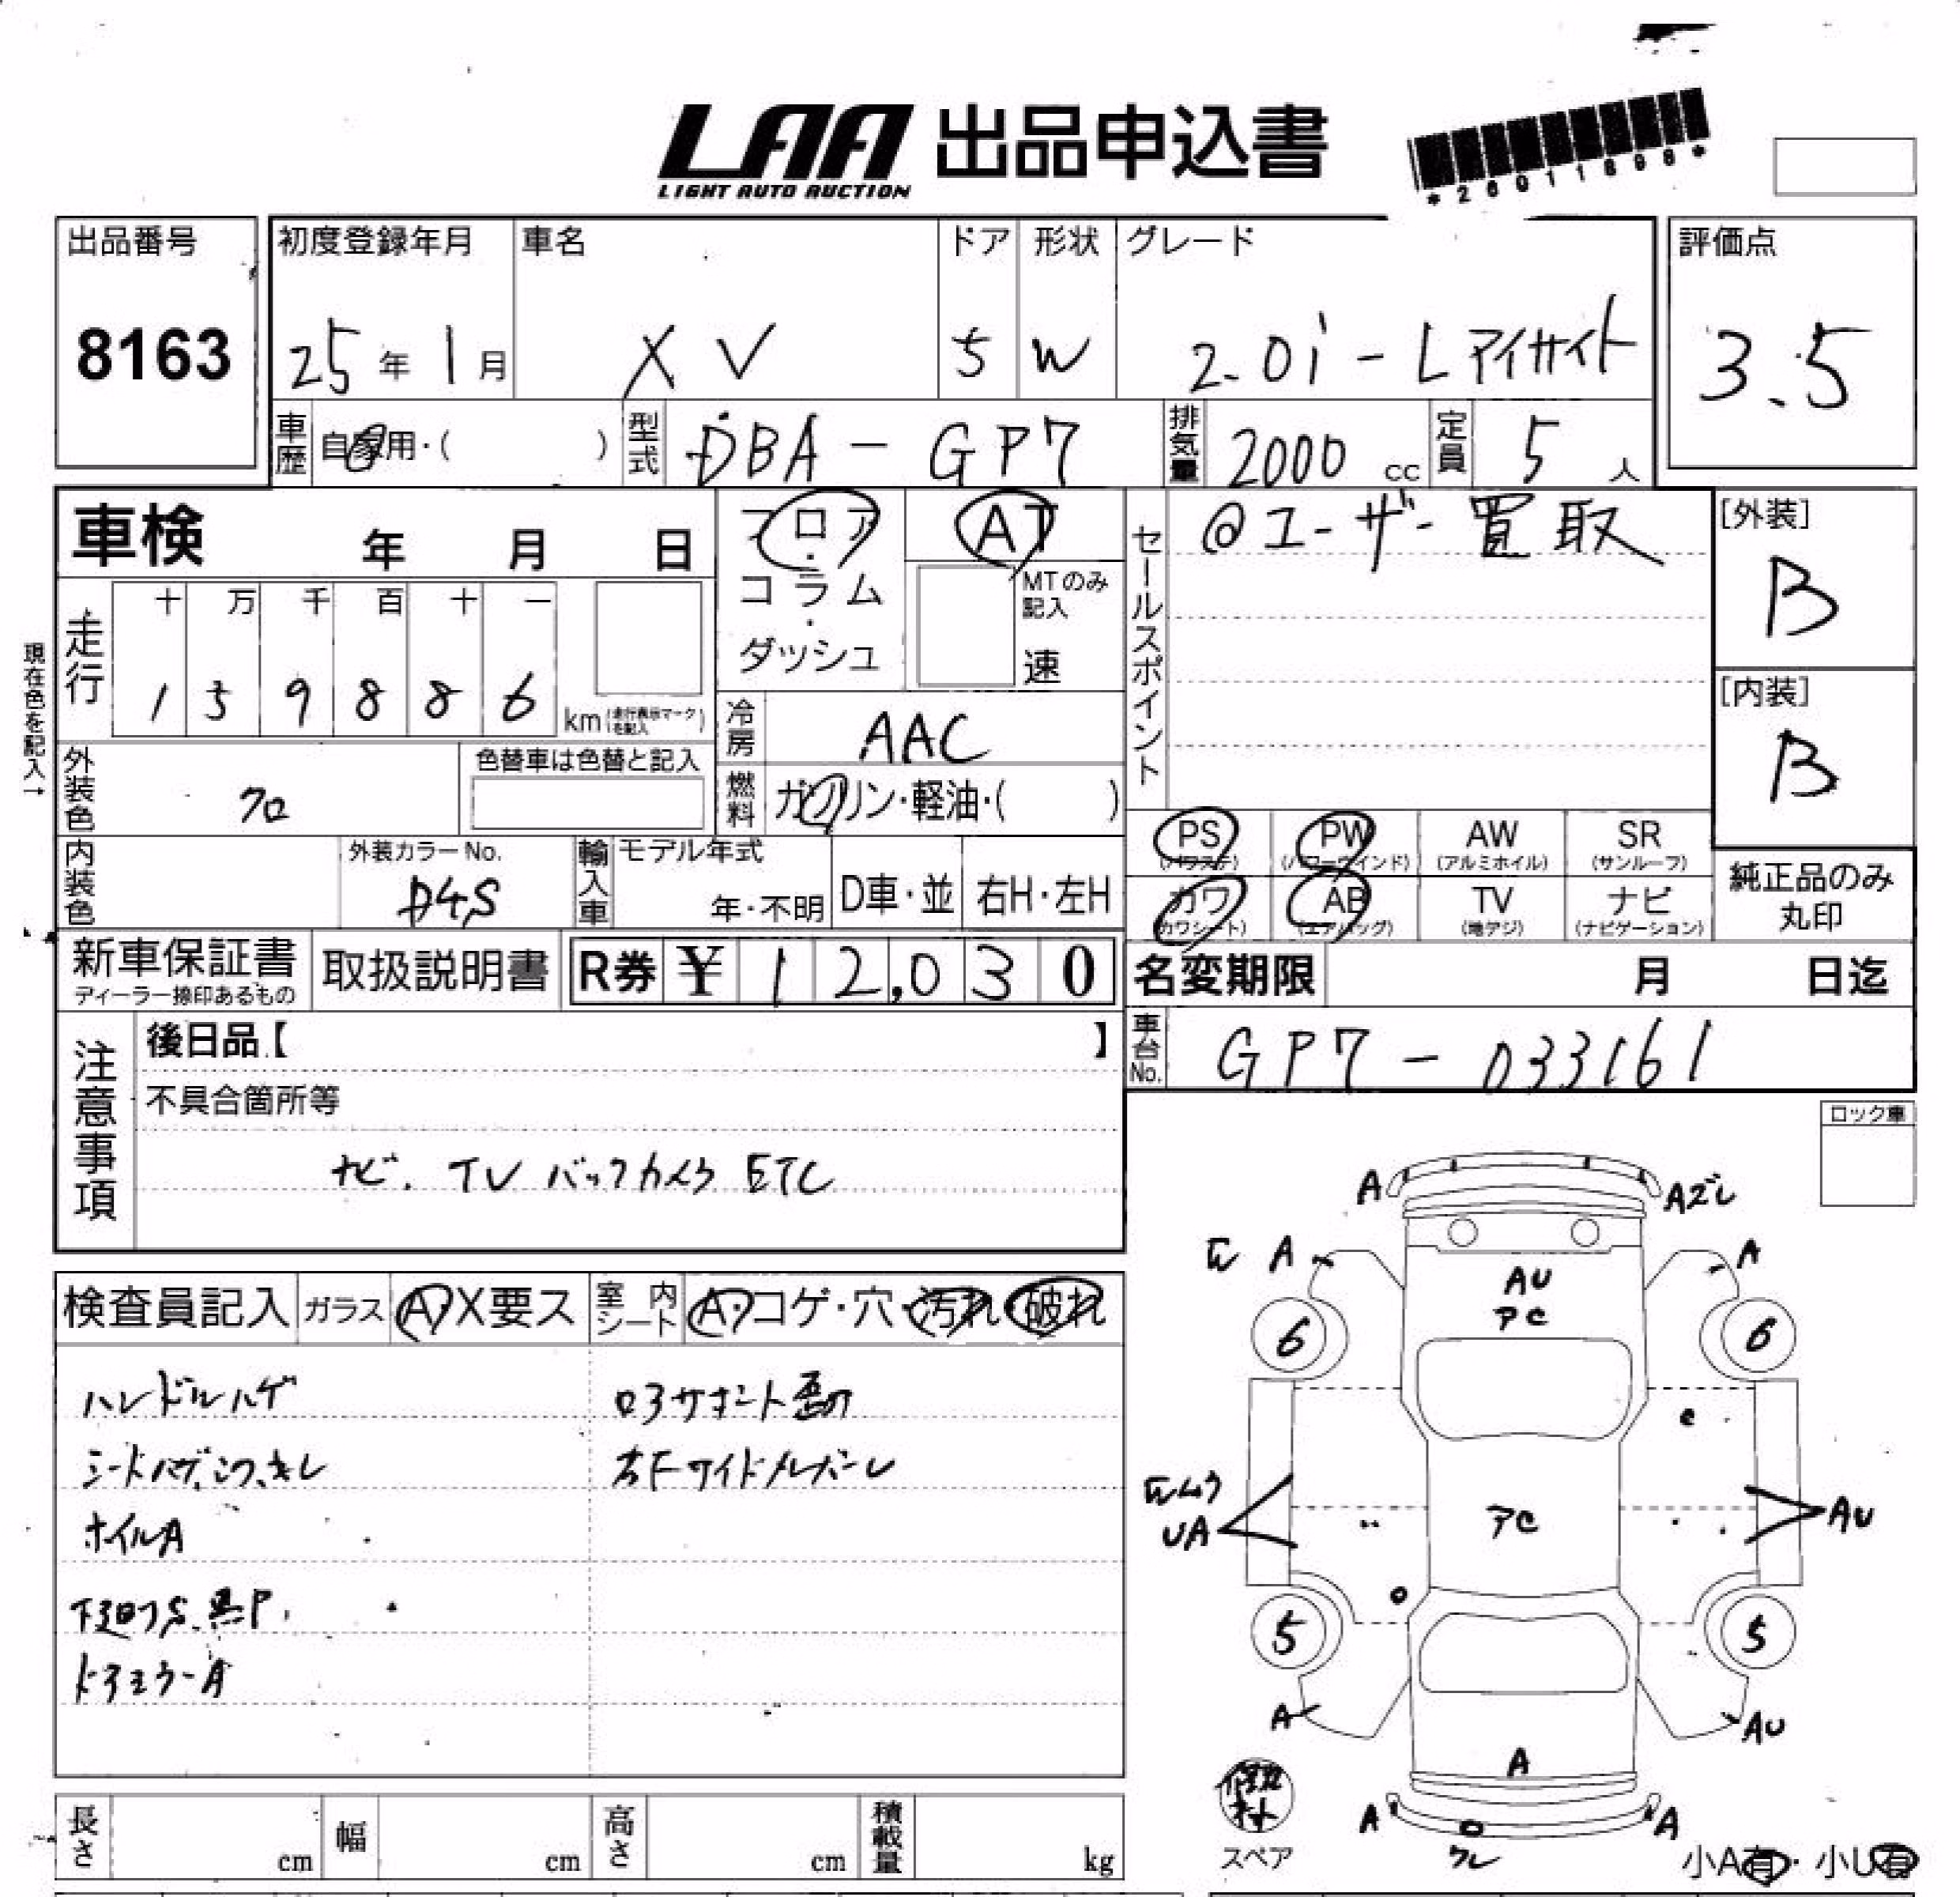 LAA 出品申込書
LIGHT AUTO AUCTION
*26011898*
出品番号
8163
初度登録年月
25年1月
車名
XV
ドア
5
形状
W
グレード
2.0i-Lアイサイト
評価点
3.5
車歴
自家用・( )
型式
DBA-GP7
排気量
2000cc
定員
5人
車検 年 月 日
フロア・コラム・ダッシュ
AT
MTのみ記入
速
セールスポイント
@ユーザー買取
[外装]
B
[内装]
B
現在色を記入↑
走行
十 万 千 百 十 一
1 5 9 8 8 6
km(走行表示マークを記入)
冷房
AAC
外装色
クロ
色替車は色替と記入
燃料
ガソリン・軽油・( )
内装色
外装カラーNo.
D4S
輸入車
モデル年式
年・不明
D車・並
右H・左H
PS (パワステ)
PW (パワーウインド)
AW (アルミホイル)
SR (サンルーフ)
カワ (カワシート)
AB (エアバッグ)
TV (地デジ)
ナビ (ナビゲーション)
純正品のみ丸印
新車保証書
ディーラー捺印あるもの
取扱説明書
R券 ¥ 12,030
名変期限 月 日迄
車台No.
GP7-033161
注意事項
後日品【 】
不具合箇所等
ナビ. TV バックカメラ ETC
ロック車
検査員記入
ガラス A・X要ス
室内シート A・コゲ・穴・汚れ・破れ
ハンドルハゲ
シートハゲ、コゲ、キレ
ホイルA
下廻りS、黒P.
ドアミラーA
コアサポート
右Fサイドメンバー
A
Aズレ
A
A
AU
アC
6
6
UA
アC
AU
5
5
A
AU
A
A
A
ワレ
スペア
小A有・小U有
長さ cm
幅 cm
高さ cm
積載量 kg